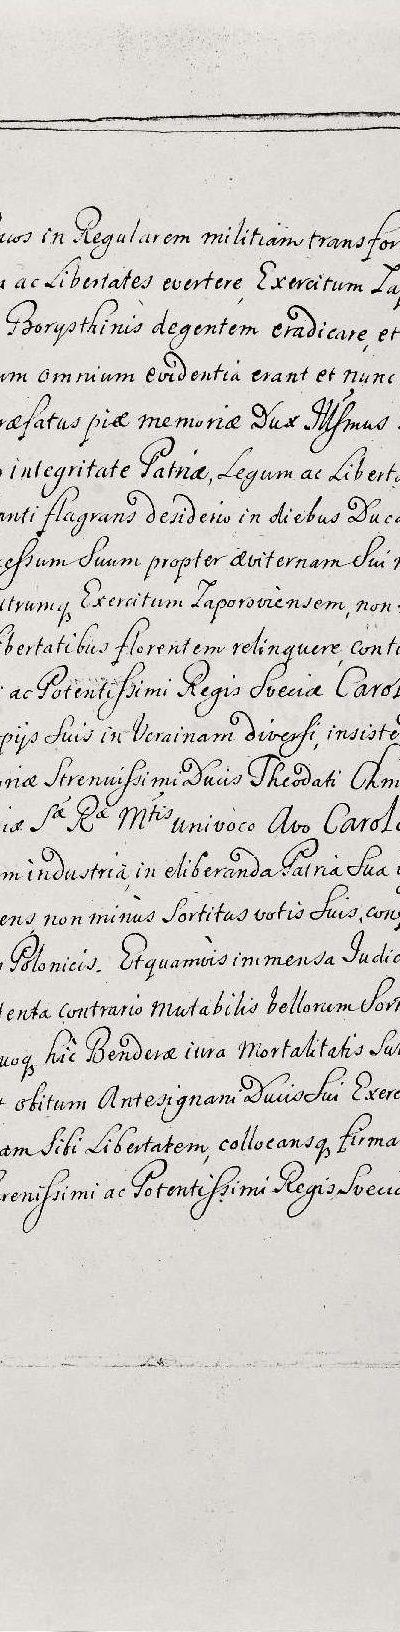 in Regularem militiam transfor
ac Libertates evertere, Exercitum Zap
Borysthinis degentem eradicare, et
um omnium evidentia erant et nunc
ræfatus piæ memoriæ Dux Illſmus
integritate Patriæ, Legum ac Liberta
anti flagrans desiderio in diebus Duca
ceſsum Suum propter æviternam Sui n
utrumq Exercitum Zaporoviensem, non
ibertatibus florentem relinquere, conti
ac Potentiſsimi Regis Sveciæ Carol
pijs Suis in Ucrainam diversi, insiste
oriæ Strenuissimi Ducis Theodati Chm
iæ Sæ Ræ Mtis univoco Avo Carolo
m industria, in eliberanda Patria Sua
ens non minùs Sortitus votis Suis, con
Polonicis. Etquamvis immensa Judic
tenta contrario mutabilis bellorum Sort
uoq hic Benderæ iura Mortalitatis Su
t obitum Antesignani Ducis Sui Exer
am Sibi Libertatem, collocansq firma
erenissimi ac Potentiſsimi Regis Sveciæ